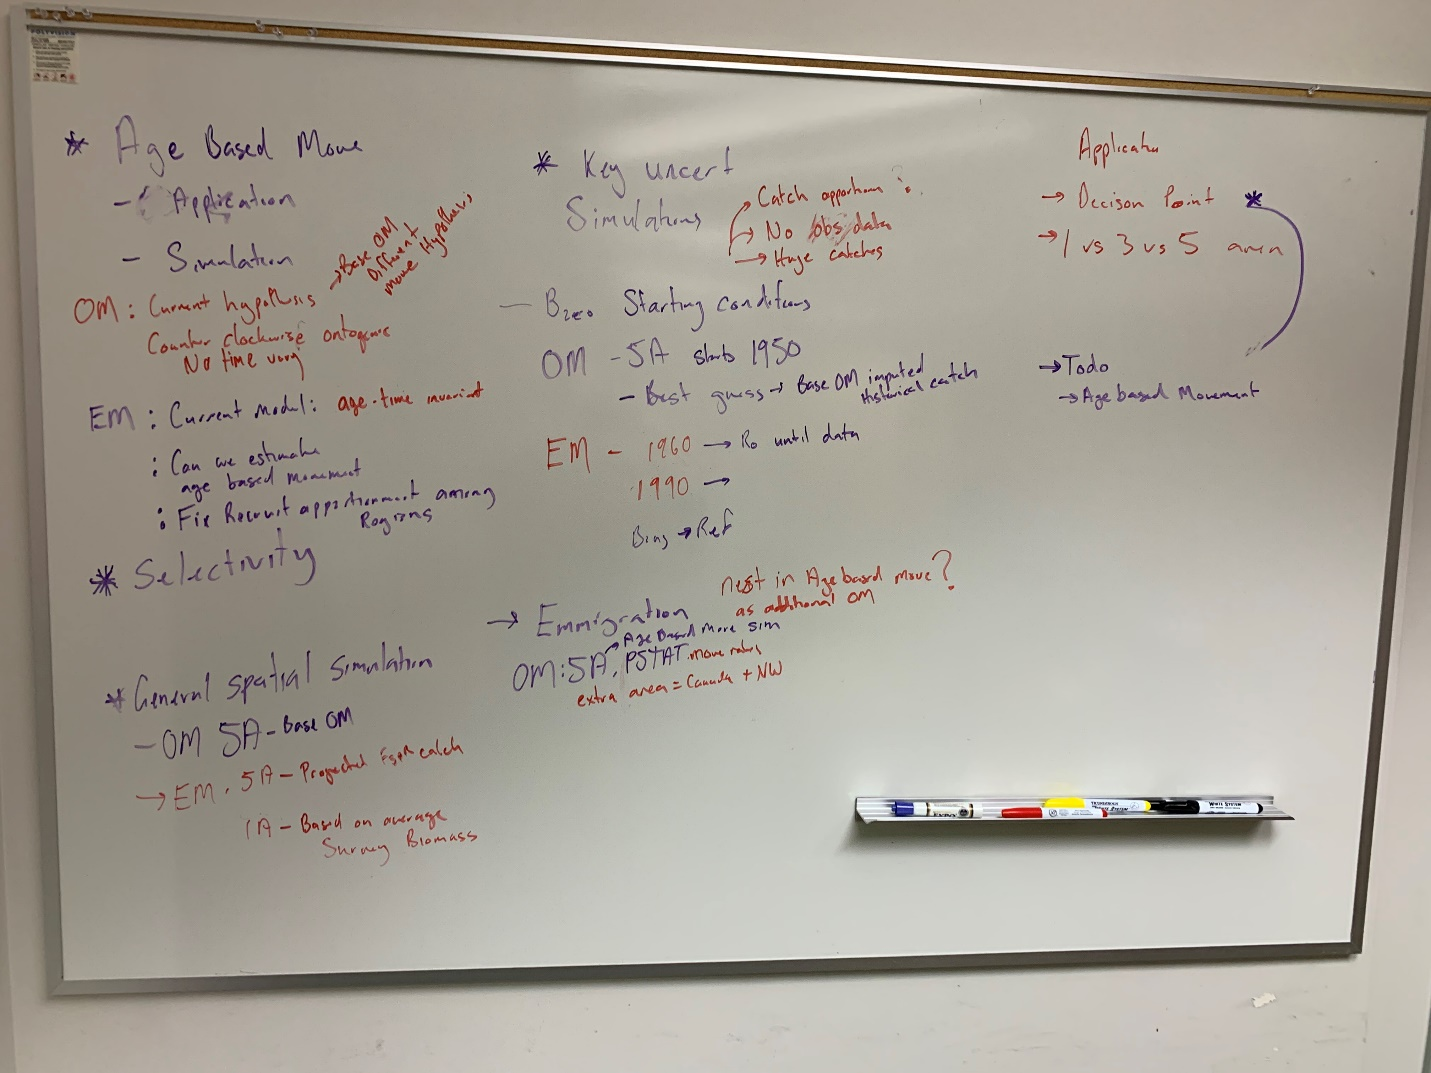 * Age Based Move
- Application
- Simulation
OM: Current hypothesis
→ Base OM
Different
move Hypothesis
Counter clockwise ontogenic
No time vary
EM: Current model: age-time invariant
: Can we estimate
age based movement
: Fix Recruit apportionment among
Regions
* Selectivity
* General spatial simulation
- OM 5A - Base OM
→ EM. 5A - Projected FSPR catch
1A - Based on average
Survey Biomass
* Key uncert
Simulations
→ Catch apportion ?
→ No obs data
→ Huge catches
- Bzero Starting conditions
OM - 5A starts 1950
- Best guess → Base OM imputed
Historical catch
EM - 1960 → Ro until data
1990 →
→ Ref
→ Emmigration
nest in Age based move?
as additional OM
Age Based Move sim
OM: 5A, PSTAT move rates
extra area = Canada + NW
→ Decison Point *
→ 1 vs 3 vs 5
→ Todo
→ Age based Movement
POLYVISION
EXPO
WHITE SYSTEM